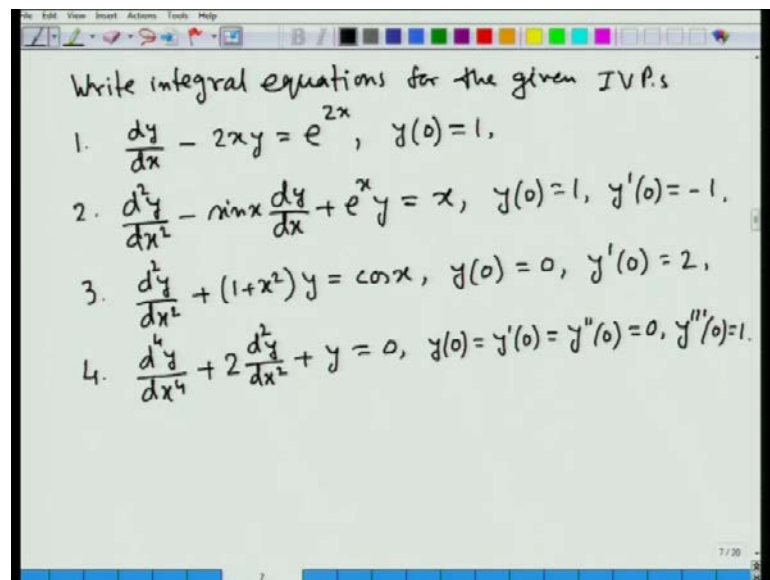 File Edit View Insert Actions Tools Help
Write integral equations for the given IVP.s
1. dy/dx - 2xy = e^{2x}, y(0) = 1,
2. d²y/dx² - sinx dy/dx + e^x y = x, y(0) = 1, y'(0) = -1.
3. d²y/dx² + (1+x²)y = cosx, y(0) = 0, y'(0) = 2,
4. d⁴y/dx⁴ + 2 d²y/dx² + y = 0, y(0) = y'(0) = y''(0) = 0, y'''(0) = 1.
7/20
7